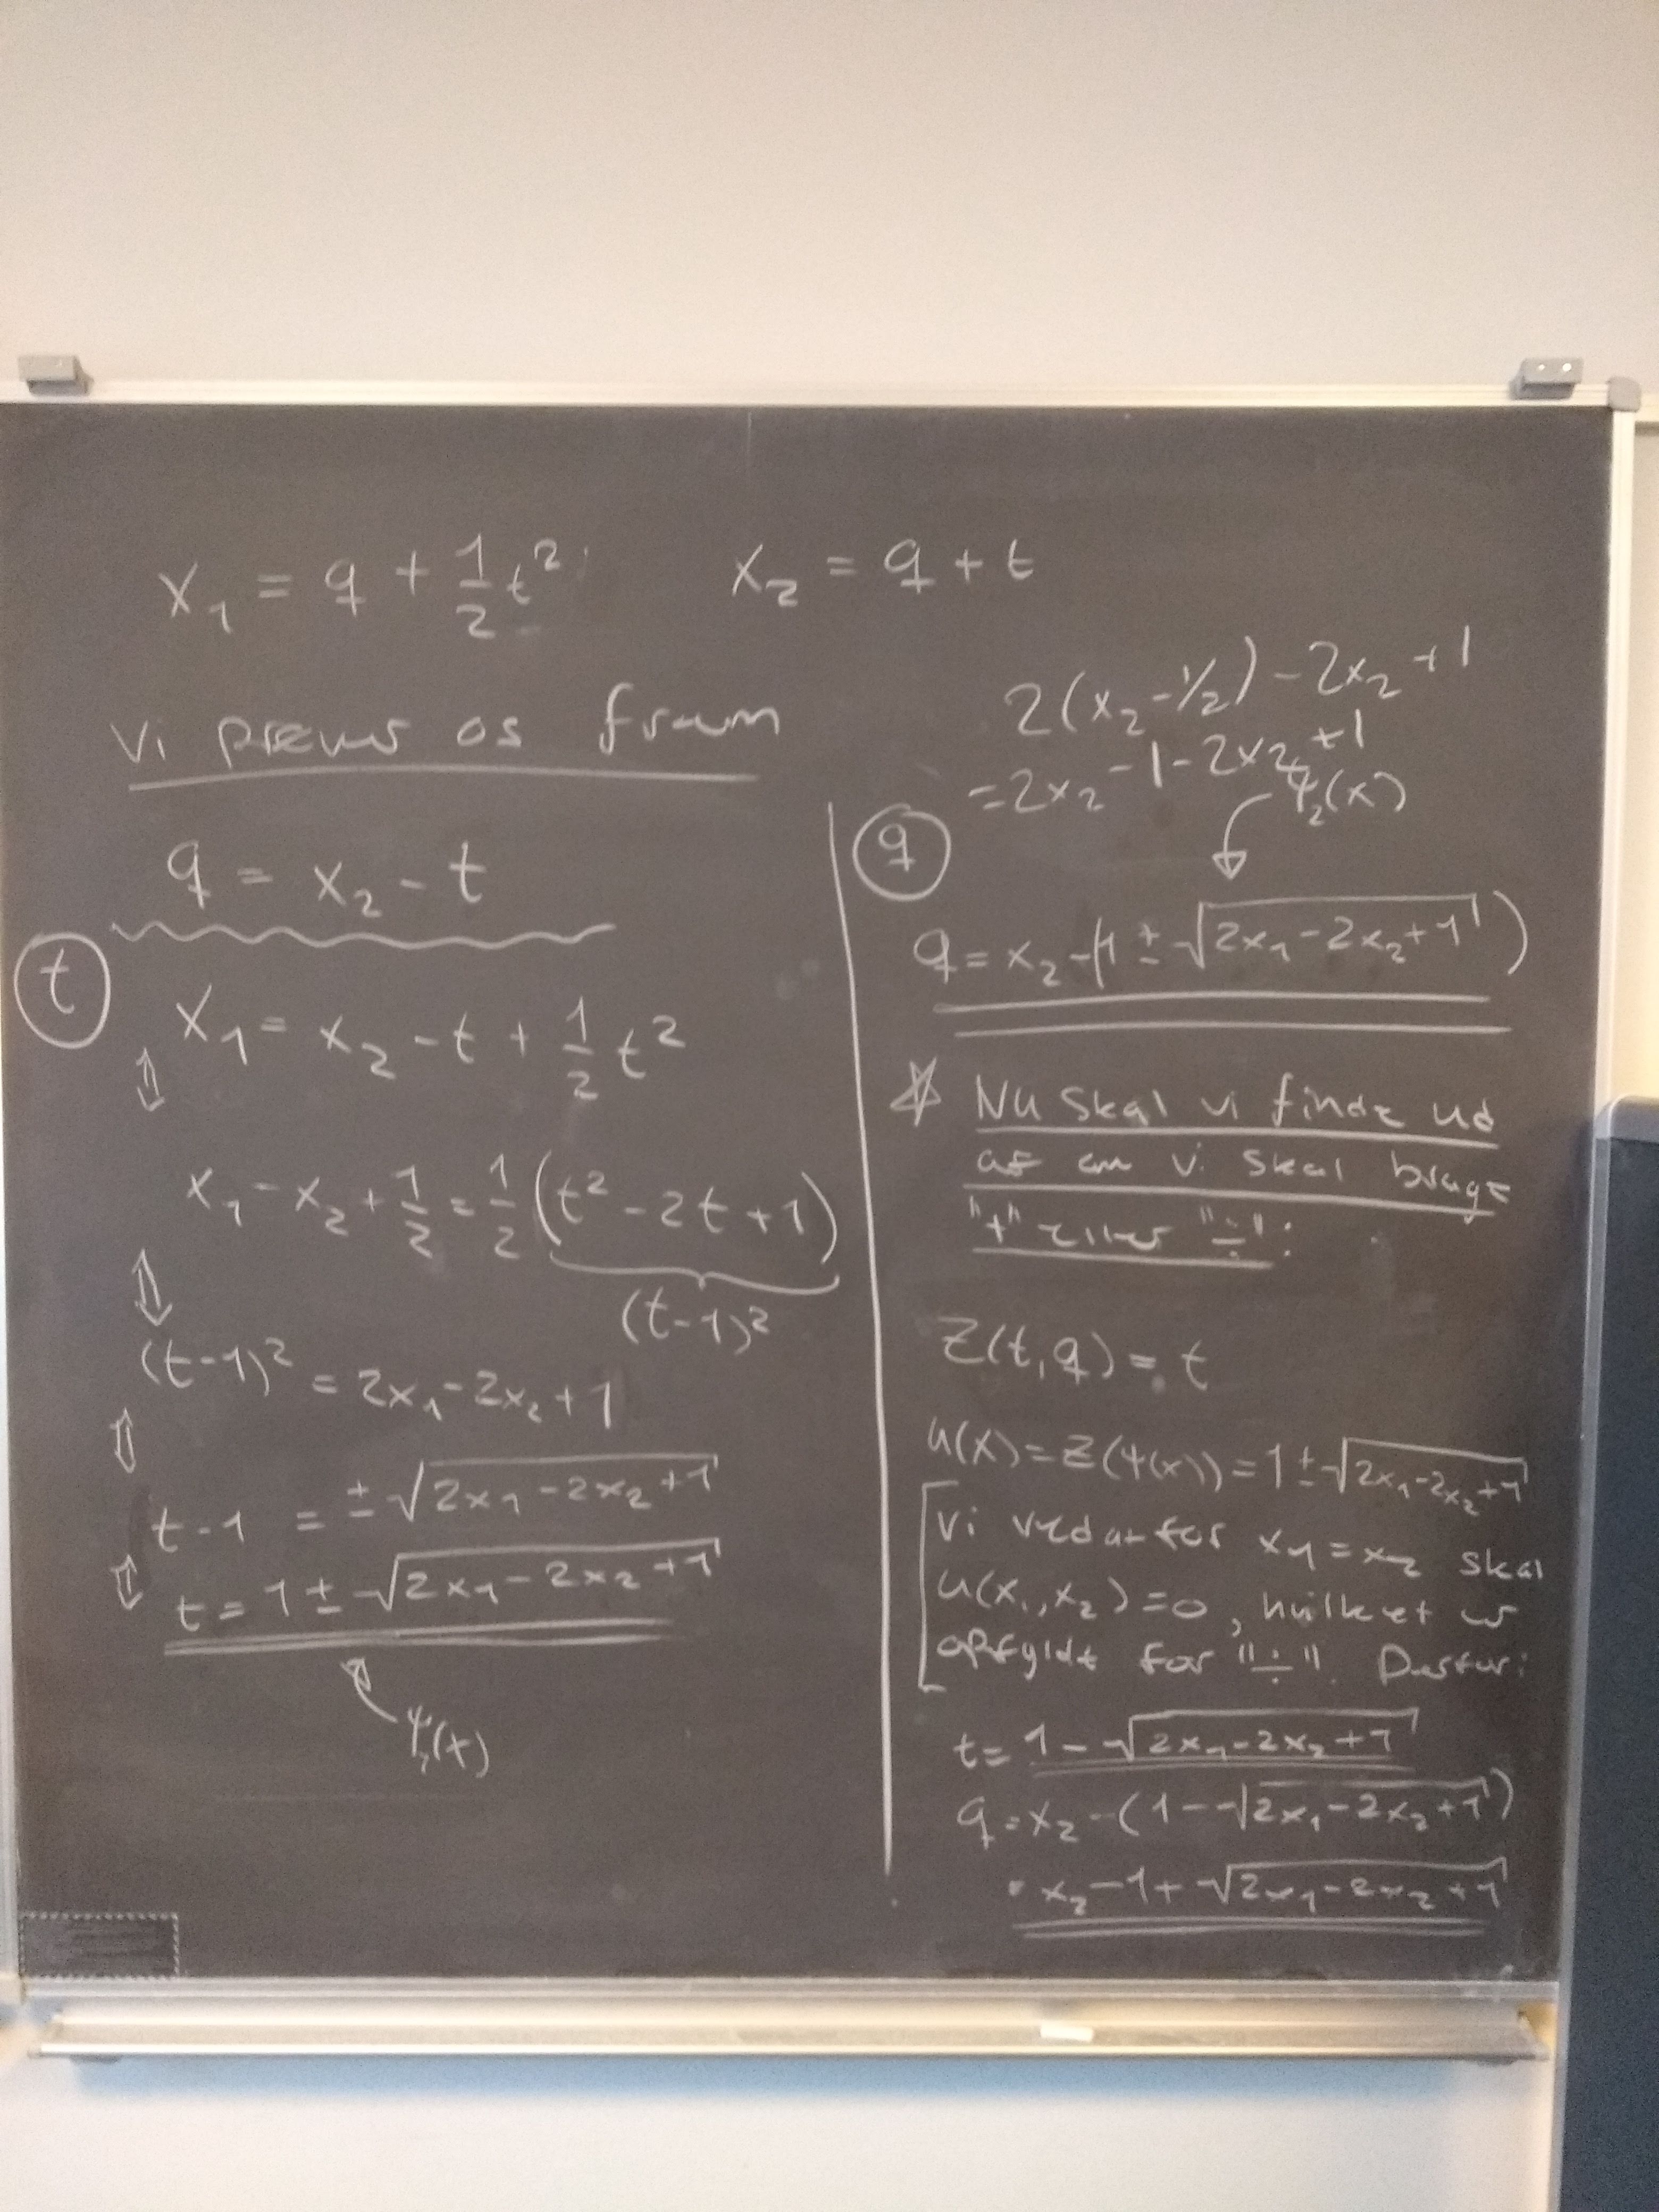 x₁ = q + 1/2 t²   x₂ = q + t
Vi prøver os frem
q = x₂ - t
t
x₁ = x₂ - t + 1/2 t²
⇕
x₁ - x₂ + 1/2 = 1/2 (t² - 2t + 1)
(t-1)²
⇕
(t-1)² = 2x₁ - 2x₂ + 1
⇕
t - 1 = ± √(2x₁ - 2x₂ + 1)
⇕
t = 1 ± √(2x₁ - 2x₂ + 1)
ψ₁(x)
2(x₂ - 1/2) - 2x₂ + 1
= 2x₂ - 1 - 2x₂ + 1
ψ₂(x)
q
q = x₂ - (1 ± √(2x₁ - 2x₂ + 1))
☆ Nu skal vi finde ud
af om vi skal bruge
"+" eller "÷":
Z(t,q) = t
u(x) = Z(ψ(x)) = 1 ± √(2x₁ - 2x₂ + 1)
Vi ved at for x₁ = x₂ skal
u(x₁,x₂) = 0, hvilket er
opfyldt for "÷". Derfor:
t = 1 - √(2x₁ - 2x₂ + 1)
q = x₂ - (1 - √(2x₁ - 2x₂ + 1))
= x₂ - 1 + √(2x₁ - 2x₂ + 1)